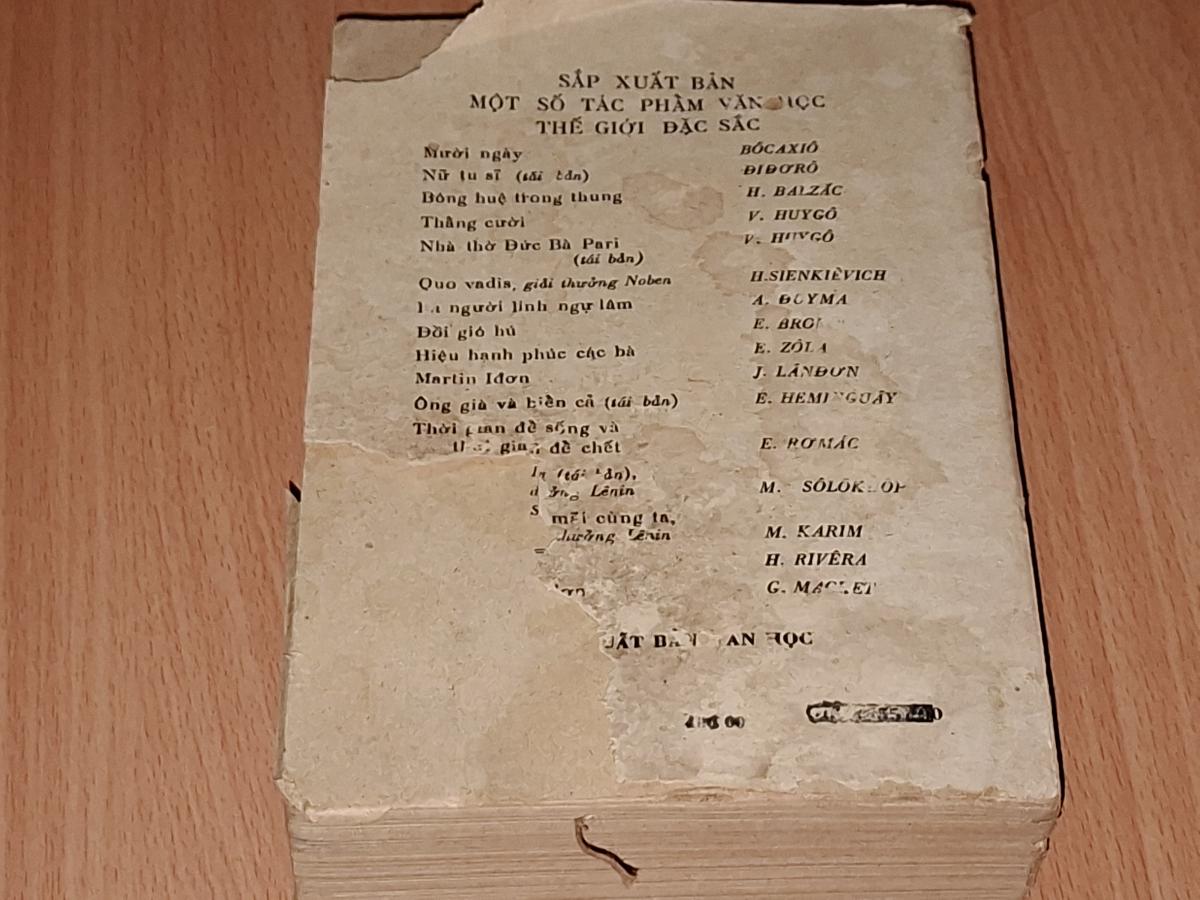 SẮP XUẤT BẢN
MỘT SỐ TÁC PHẨM VĂN HỌC
THẾ GIỚI ĐẶC SẮC
Mười ngày BÔCAXIÔ
Nữ tu sĩ (tái bản) ĐIĐƠRÔ
Bông huệ trong thung H. BALZĂC
Thằng cười V. HUYGÔ
Nhà thờ Đức Bà Pari V. HUYGÔ
(tái bản)
Quo vadis, giải thưởng Noben H.SIENKIÊVICH
người lính ngự lâm A. ĐUYMA
Đồi gió hú E.
Hiệu hạnh phúc các bà E. ZÔLA
Martin Iđơn J. LÂNĐƠN
Ông già và biển cả (tái bản) E. HEMINGUÂY
Thời gian để sống và
thời gian để chết E. RƠMÁC
(tái bản),
Lênin M. SÔLÔKHỐP
mãi cùng ta,
thưởng Lênin M. KARIM
H. RIVÊRA
G.
BẢN HỌC